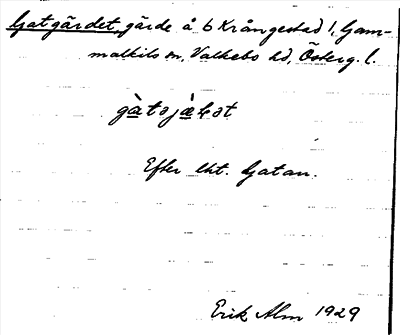 Gatgärdet, gärde å 6 Krångestad 1, Gam-
malkils sn, Valkebo hd, Österg. l.
gà̱təjæ̱ət
Efter lht. Gatan.
Erik Alm 1929